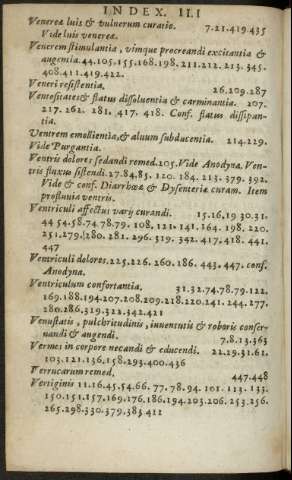 INDEX. III
Venereæ luis & vulnerum curatio. 7.21.419.435
Vide luis venerea.
Venerem stimulantia, vimque procreandi excitantia &
augentia. 44.105.155.168.198.211.212.213.345.
408.411.419.422.
Veneri resistentia. 26.209.287
Ventositates & flatus dissoluentia & carminantia. 207.
217.262.281.417.418. Conf. flatus dissipan-
tia.
Ventrem emollientia, & aluum subducentia. 214.229.
Vide Purgantia.
Ventris dolores sedandi remed. 205. Vide Anodyna. Ven-
tris fluxus sistendi. 27.84.85.120.184.213.379.392.
Vide & conf. Diarrhœæ & Dysenteriæ curam. Item
profluuia ventris.
Ventriculi affectus varij curandi. 15.16.19.30.31.
44.54.58.74.78.79.108.121.141.164.198.220.
251.279.280.281.296.319.342.417.418.441.
447
Ventriculi dolores. 225.226.260.186.443.447. conf.
Anodyna.
Ventriculum confortantia. 31.32.74.78.79.122.
169.188.194.207.208.209.218.220.241.244.277.
280.286.319.322.342.421
Venustatis, pulchritudinis, iuuentutis & roboris conser-
uandi & augendi. 7.8.13.363
Vermes in corpore necandi & educendi. 22.29.31.61.
103.121.136.158.293.400.436
Verrucarum remed. 447.448
Vertiginis 11.16.45.54.66.77.78.94.101.113.133.
150.151.157.169.176.186.194.203.206.253.256.
265.298.330.379.383.411